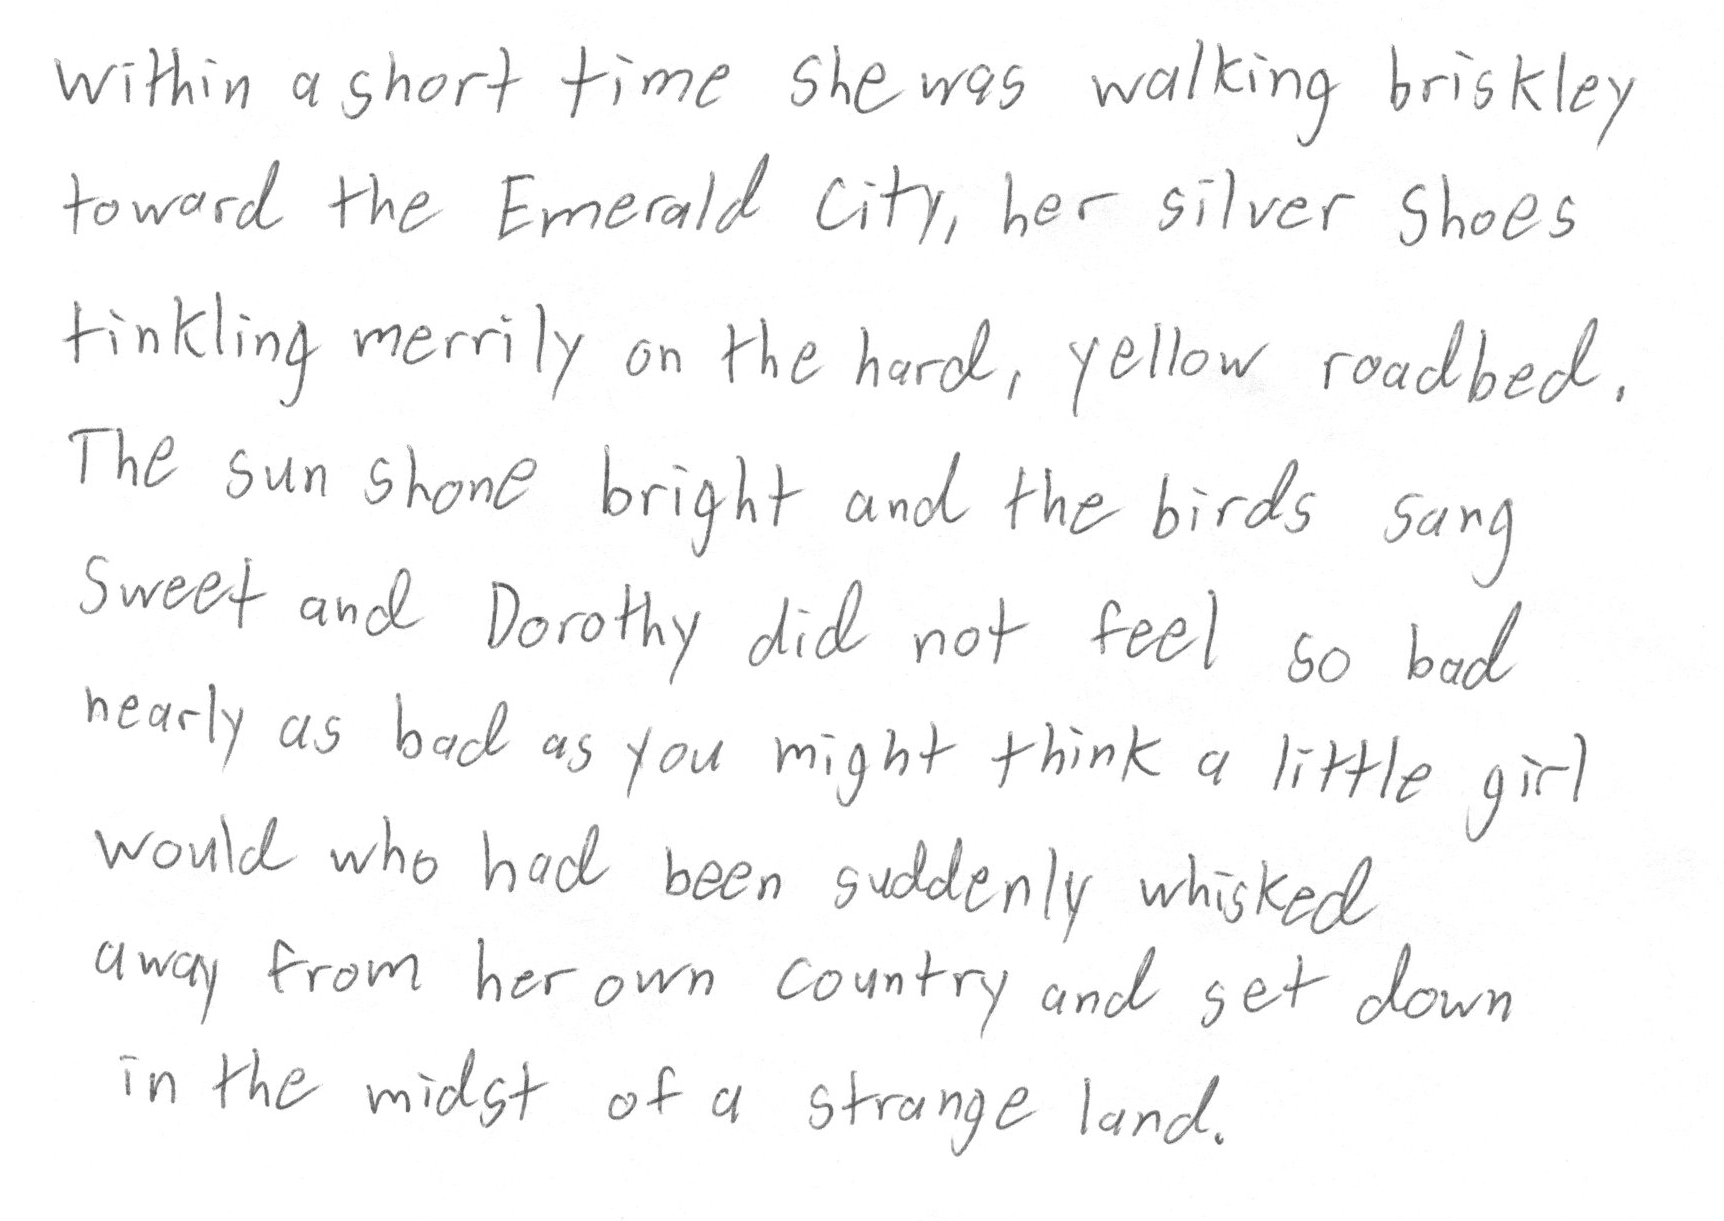 within a short time she was walking briskley
toward the Emerald City, her silver shoes
tinkling merrily on the hard, yellow roadbed.
The sun shone bright and the birds sang
sweet and Dorothy did not feel so bad
nearly as bad as you might think a little girl
would who had been suddenly whisked
away from her own country and set down
in the midst of a strange land.